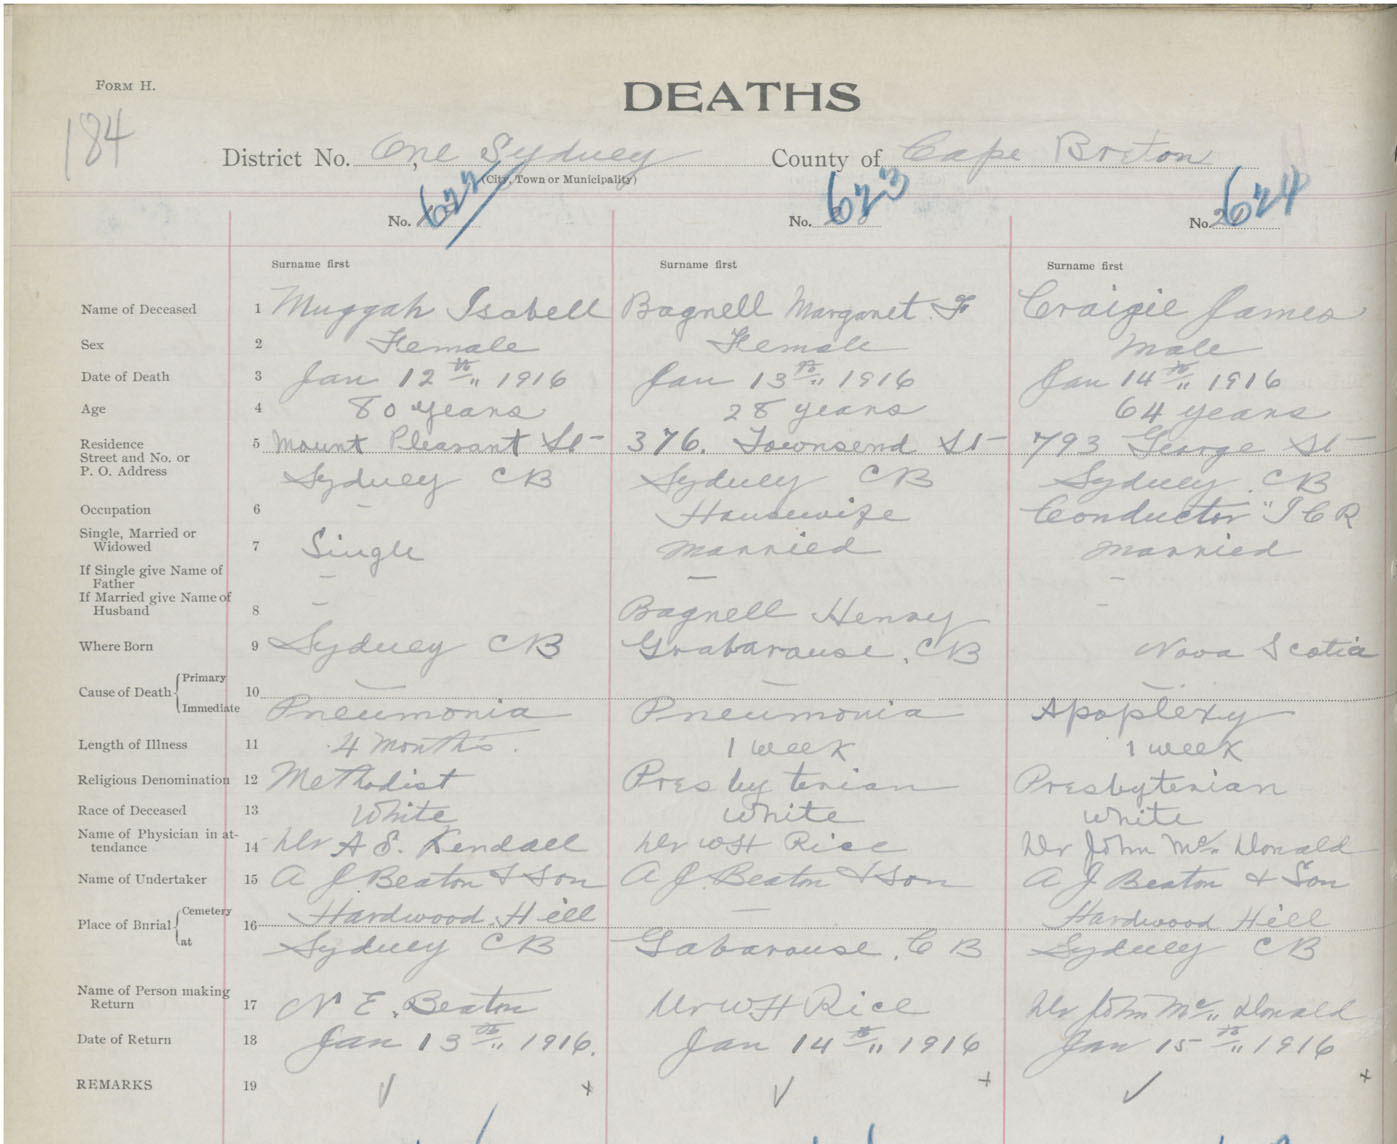 FORM H.
DEATHS
184
District No. One, Sydney County of Cape Breton
(City, Town or Municipality)
No. 622 No. 623 No. 624
Surname first Surname first Surname first
Name of Deceased 1 Muggah Isabell Bagnell Margaret F Craigie James
Sex 2 Female Female Male
Date of Death 3 Jan 12th " 1916 Jan 13th " 1916 Jan 14th " 1916
Age 4 80 years 28 years 64 years
Residence 5 Mount Pleasant St 376. Townsend St 793 George St
Street and No. or
P. O. Address Sydney CB Sydney CB Sydney CB
Occupation 6 – Housewife Conductor "I C R
Single, Married or
Widowed 7 Single married married
If Single give Name of
Father – – –
If Married give Name of – –
Husband 8 Bagnell Henry
Where Born 9 Sydney CB Grabarouse, CB Nova Scotia
Cause of Death Primary 10 – – –
Immediate Pneumonia Pneumonia Apoplexy
Length of Illness 11 4 months. 1 week 1 week
Religious Denomination 12 Methodist Presbyterian Presbyterian
Race of Deceased 13 White White White
Name of Physician in at-
tendance 14 Dr A E. Kendall Dr W H Rice Dr John Mc" Donald
Name of Undertaker 15 A J. Beaton & Son A J. Beaton & Son A J Beaton & Son
Place of Bnrial Cemetery 16 Hardwood Hill – Hardwood Hill
at Sydney CB Gabarouse, C B Sydney CB
Name of Person making
Return 17 N E. Beaton Dr W H Rice Dr John Mc" Donald
Date of Return 18 Jan 13th " 1916. Jan 14th " 1916 Jan 15th " 1916
REMARKS 19 ✓ x ✓ x ✓ x